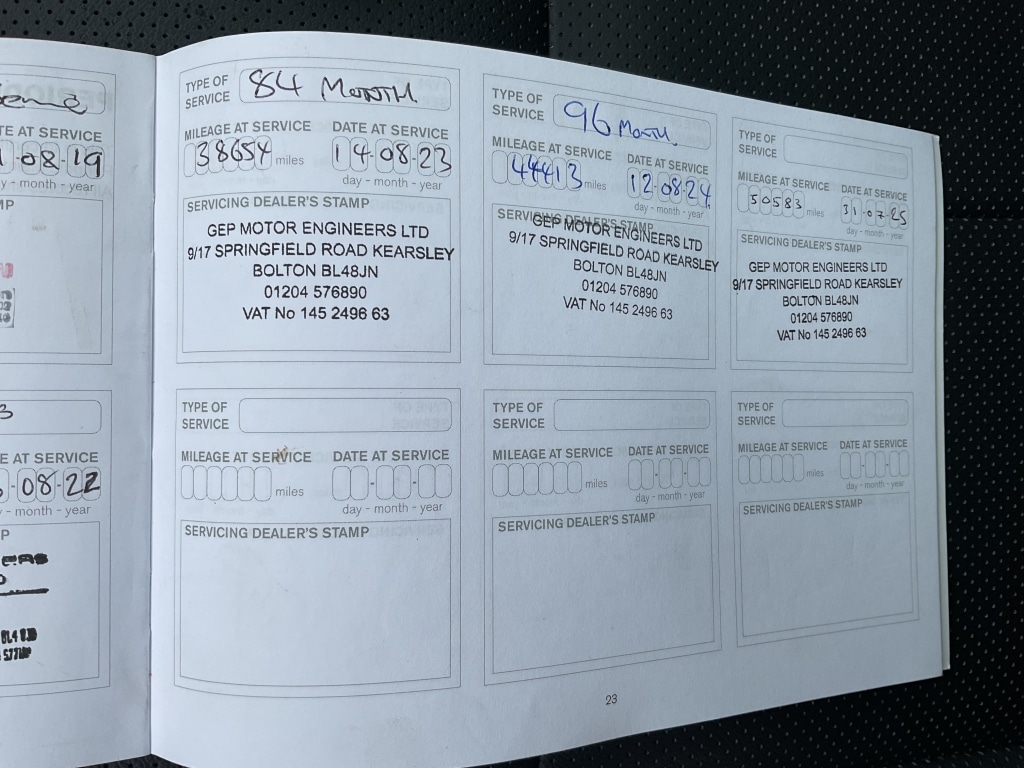 TE AT SERVICE
08-19
- month - year
E AT SERVICE
08-22
- month - year
TYPE OF SERVICE 84 MONTH
MILEAGE AT SERVICE DATE AT SERVICE
38654 miles 14-08-23
day - month - year
SERVICING DEALER'S STAMP
GEP MOTOR ENGINEERS LTD
9/17 SPRINGFIELD ROAD KEARSLEY
BOLTON BL48JN
01204 576890
VAT No 145 2496 63
TYPE OF SERVICE 96 Month
MILEAGE AT SERVICE DATE AT SERVICE
44413 miles 12-08-24
day - month - year
SERVICING DEALER'S STAMP
GEP MOTOR ENGINEERS LTD
9/17 SPRINGFIELD ROAD KEARSLEY
BOLTON BL48JN
01204 576890
VAT No 145 2496 63
TYPE OF SERVICE
MILEAGE AT SERVICE DATE AT SERVICE
50583 miles 31-07-25
day - month - year
SERVICING DEALER'S STAMP
GEP MOTOR ENGINEERS LTD
9/17 SPRINGFIELD ROAD KEARSLEY
BOLTON BL48JN
01204 576890
VAT No 145 2496 63
TYPE OF SERVICE
MILEAGE AT SERVICE DATE AT SERVICE
miles
day - month - year
SERVICING DEALER'S STAMP
TYPE OF SERVICE
MILEAGE AT SERVICE DATE AT SERVICE
miles
day - month - year
SERVICING DEALER'S STAMP
TYPE OF SERVICE
MILEAGE AT SERVICE DATE AT SERVICE
miles
day - month - year
SERVICING DEALER'S STAMP
23